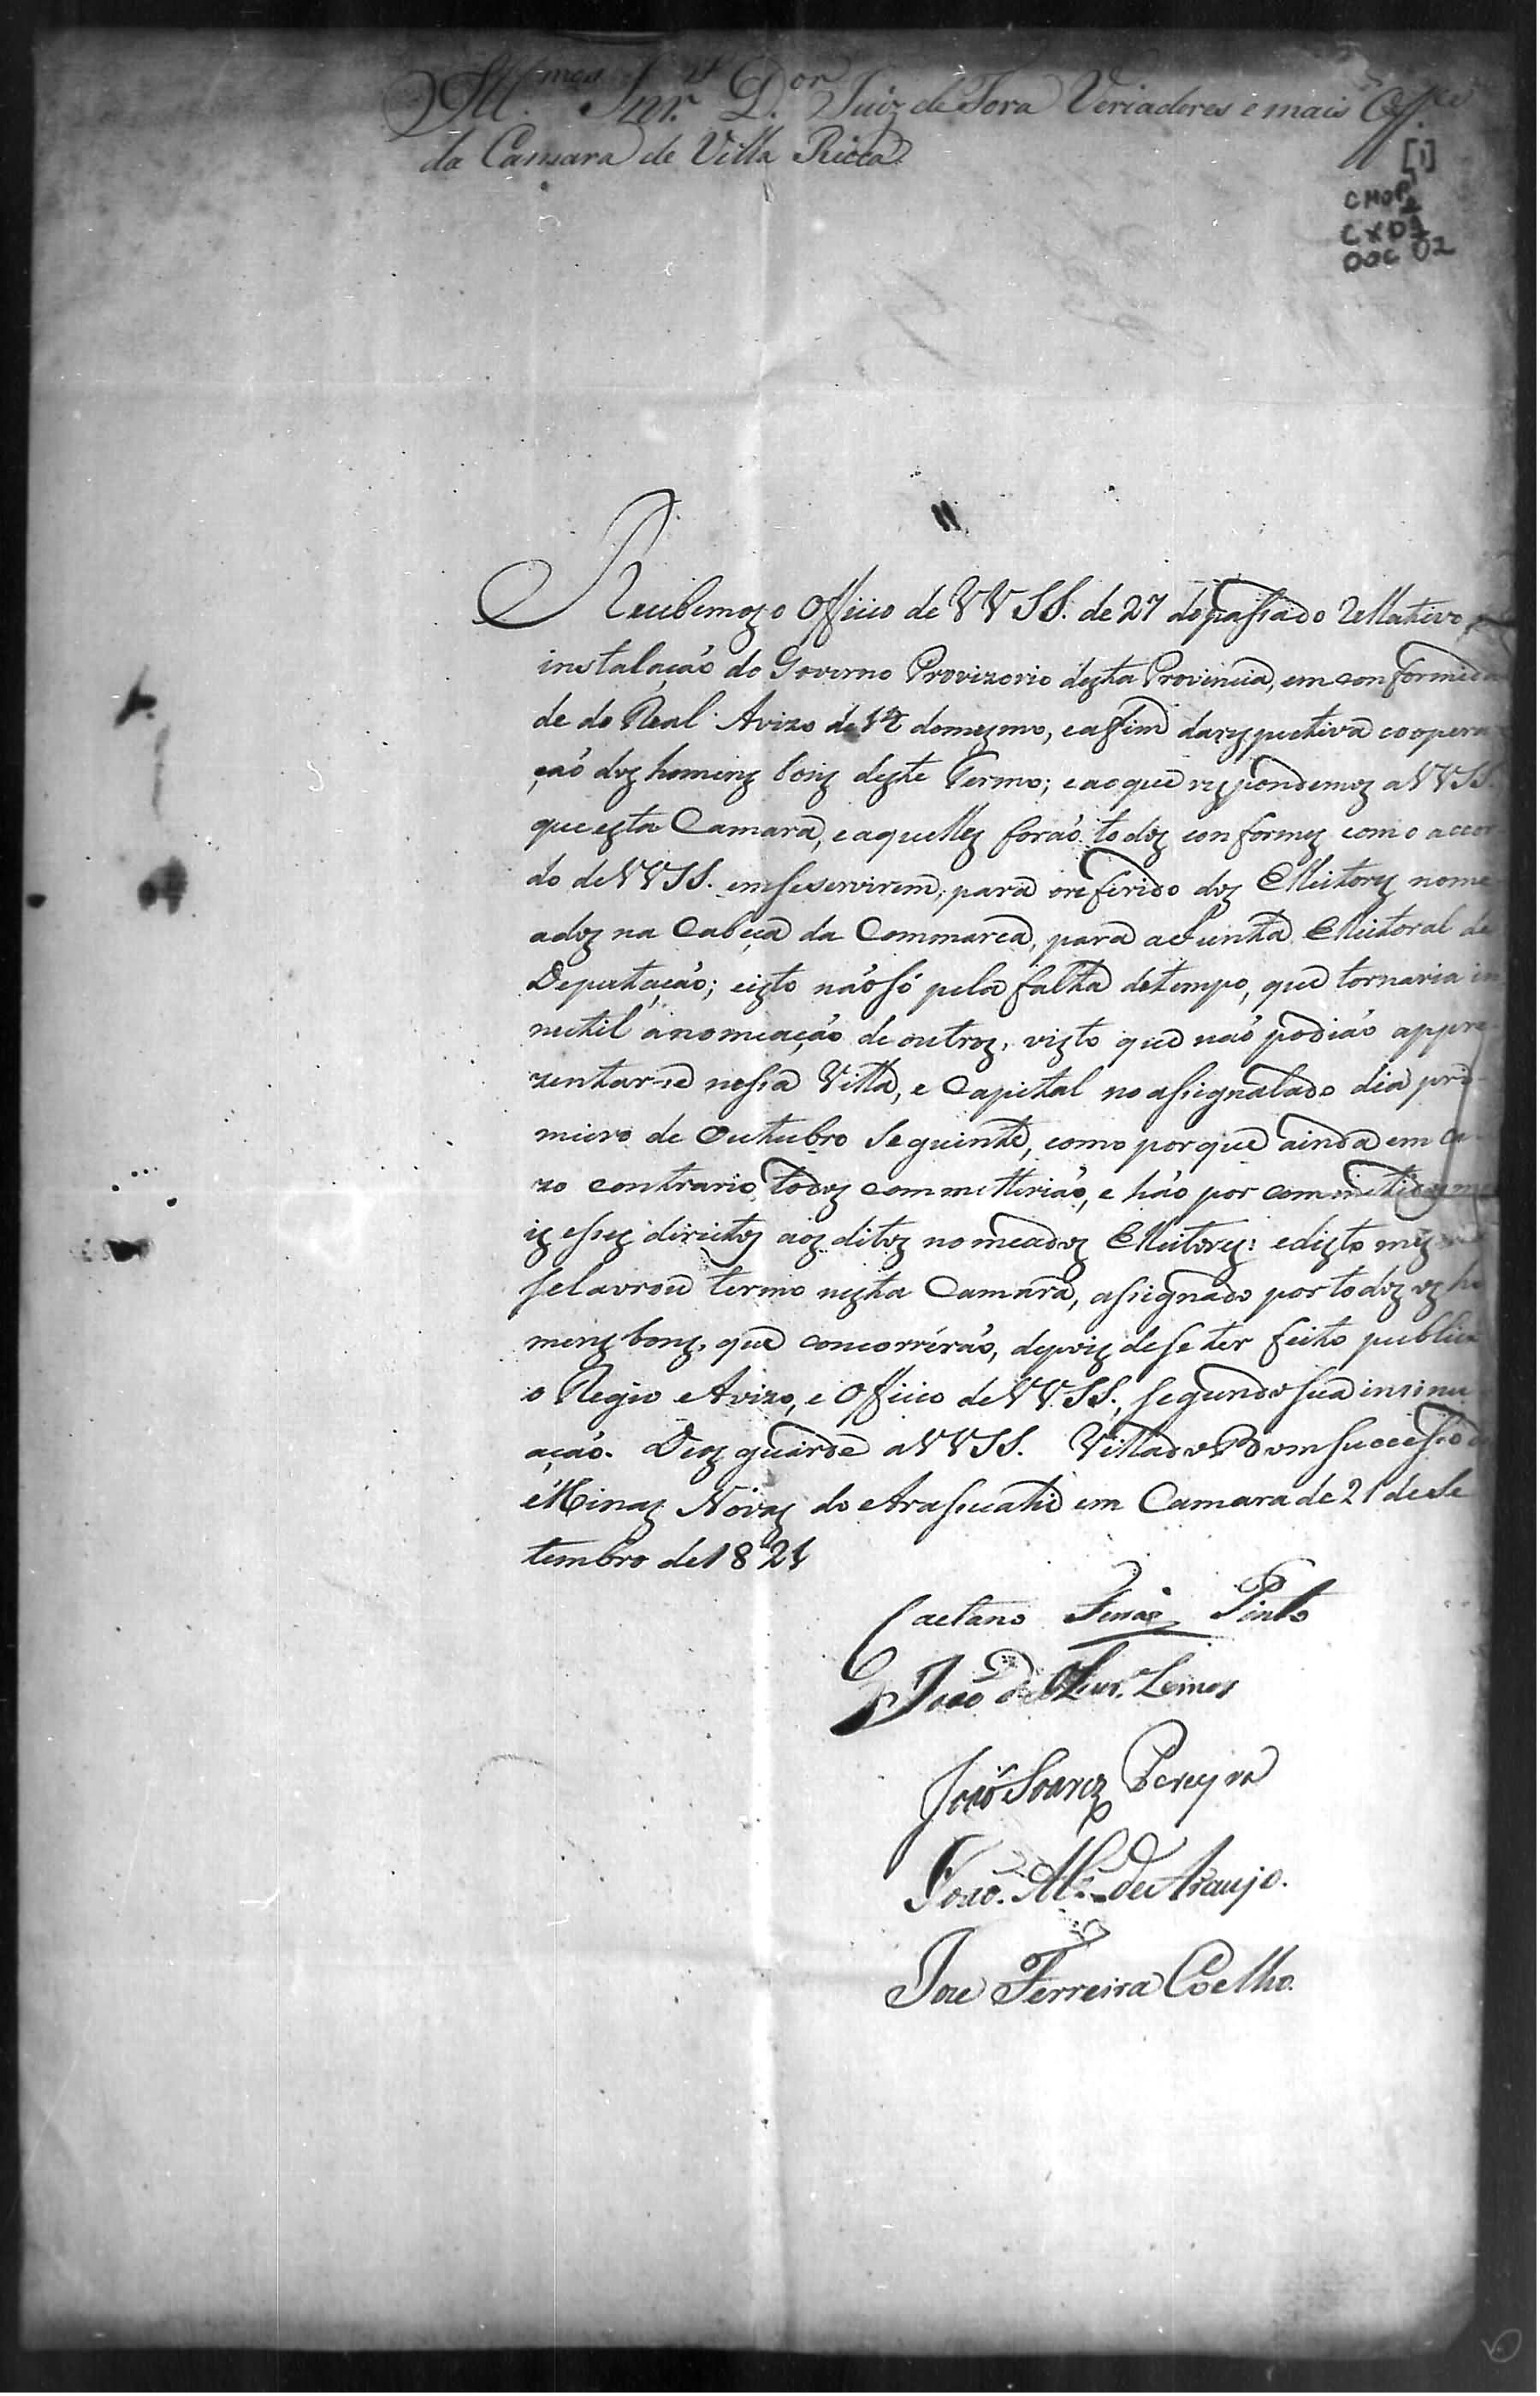 Ill.mos Snr.es D.or Juiz de Fora Veriadores e mais Off.es
da Camara de Villa Ricca
[1]
CMOP
CX 01
DOC 02
Recebemos o Officio de VVSS. de 27 do passado rellativo
instalação do Governo Provizorio desta Provincia, em conformida
de do Real Avizo de do mesmo, e a fim da respectiva coopera
ção dos homens bons deste Termo; e ao que respondemos a VVSS.
que esta Camara, e aquelles forão todos conformes com o accor
do de VVSS. em se servirem, para o referido dos Elleitores nome
ados na Cabeça da Commarca, para a Junta Elleitoral de
Deputação; e isto não só pela falta de tempo, que tornaria in
nutil a nomeação de outros, visto que não podião appre
zentar-se nessa Villa, e Capital no assignalado dia pri-
meiro de Outubro seguinte, como porque ainda em ca-
zo contrario todos commetterião, e hão por commettidos
esses direitos aos ditos nomeados Elleitores: e disto
se lavrou termo nesta Camara, assignado por todos os ho
mens bons, que concorrérão, depois de se ter feito publico
o Regio Avizo, e Officio de VVSS., segundo sua insinu
ação. Deos guarde a VVSS. Villa do Bom Successo de
Minas Novas do Arassuahi em Camara de 21 de Se
tembro de 1821
Caetano Pinto
João de Oliv.ra Lemos
João Soares Pereyra
João Al.z de Araujo.
Joze Ferreira Coelho.